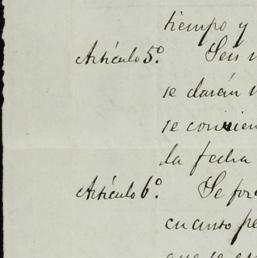 tiempo y
Artículo 5º. Seis
se darán
se convien
la fecha
Artículo 6º. Se for
cuanto
que se